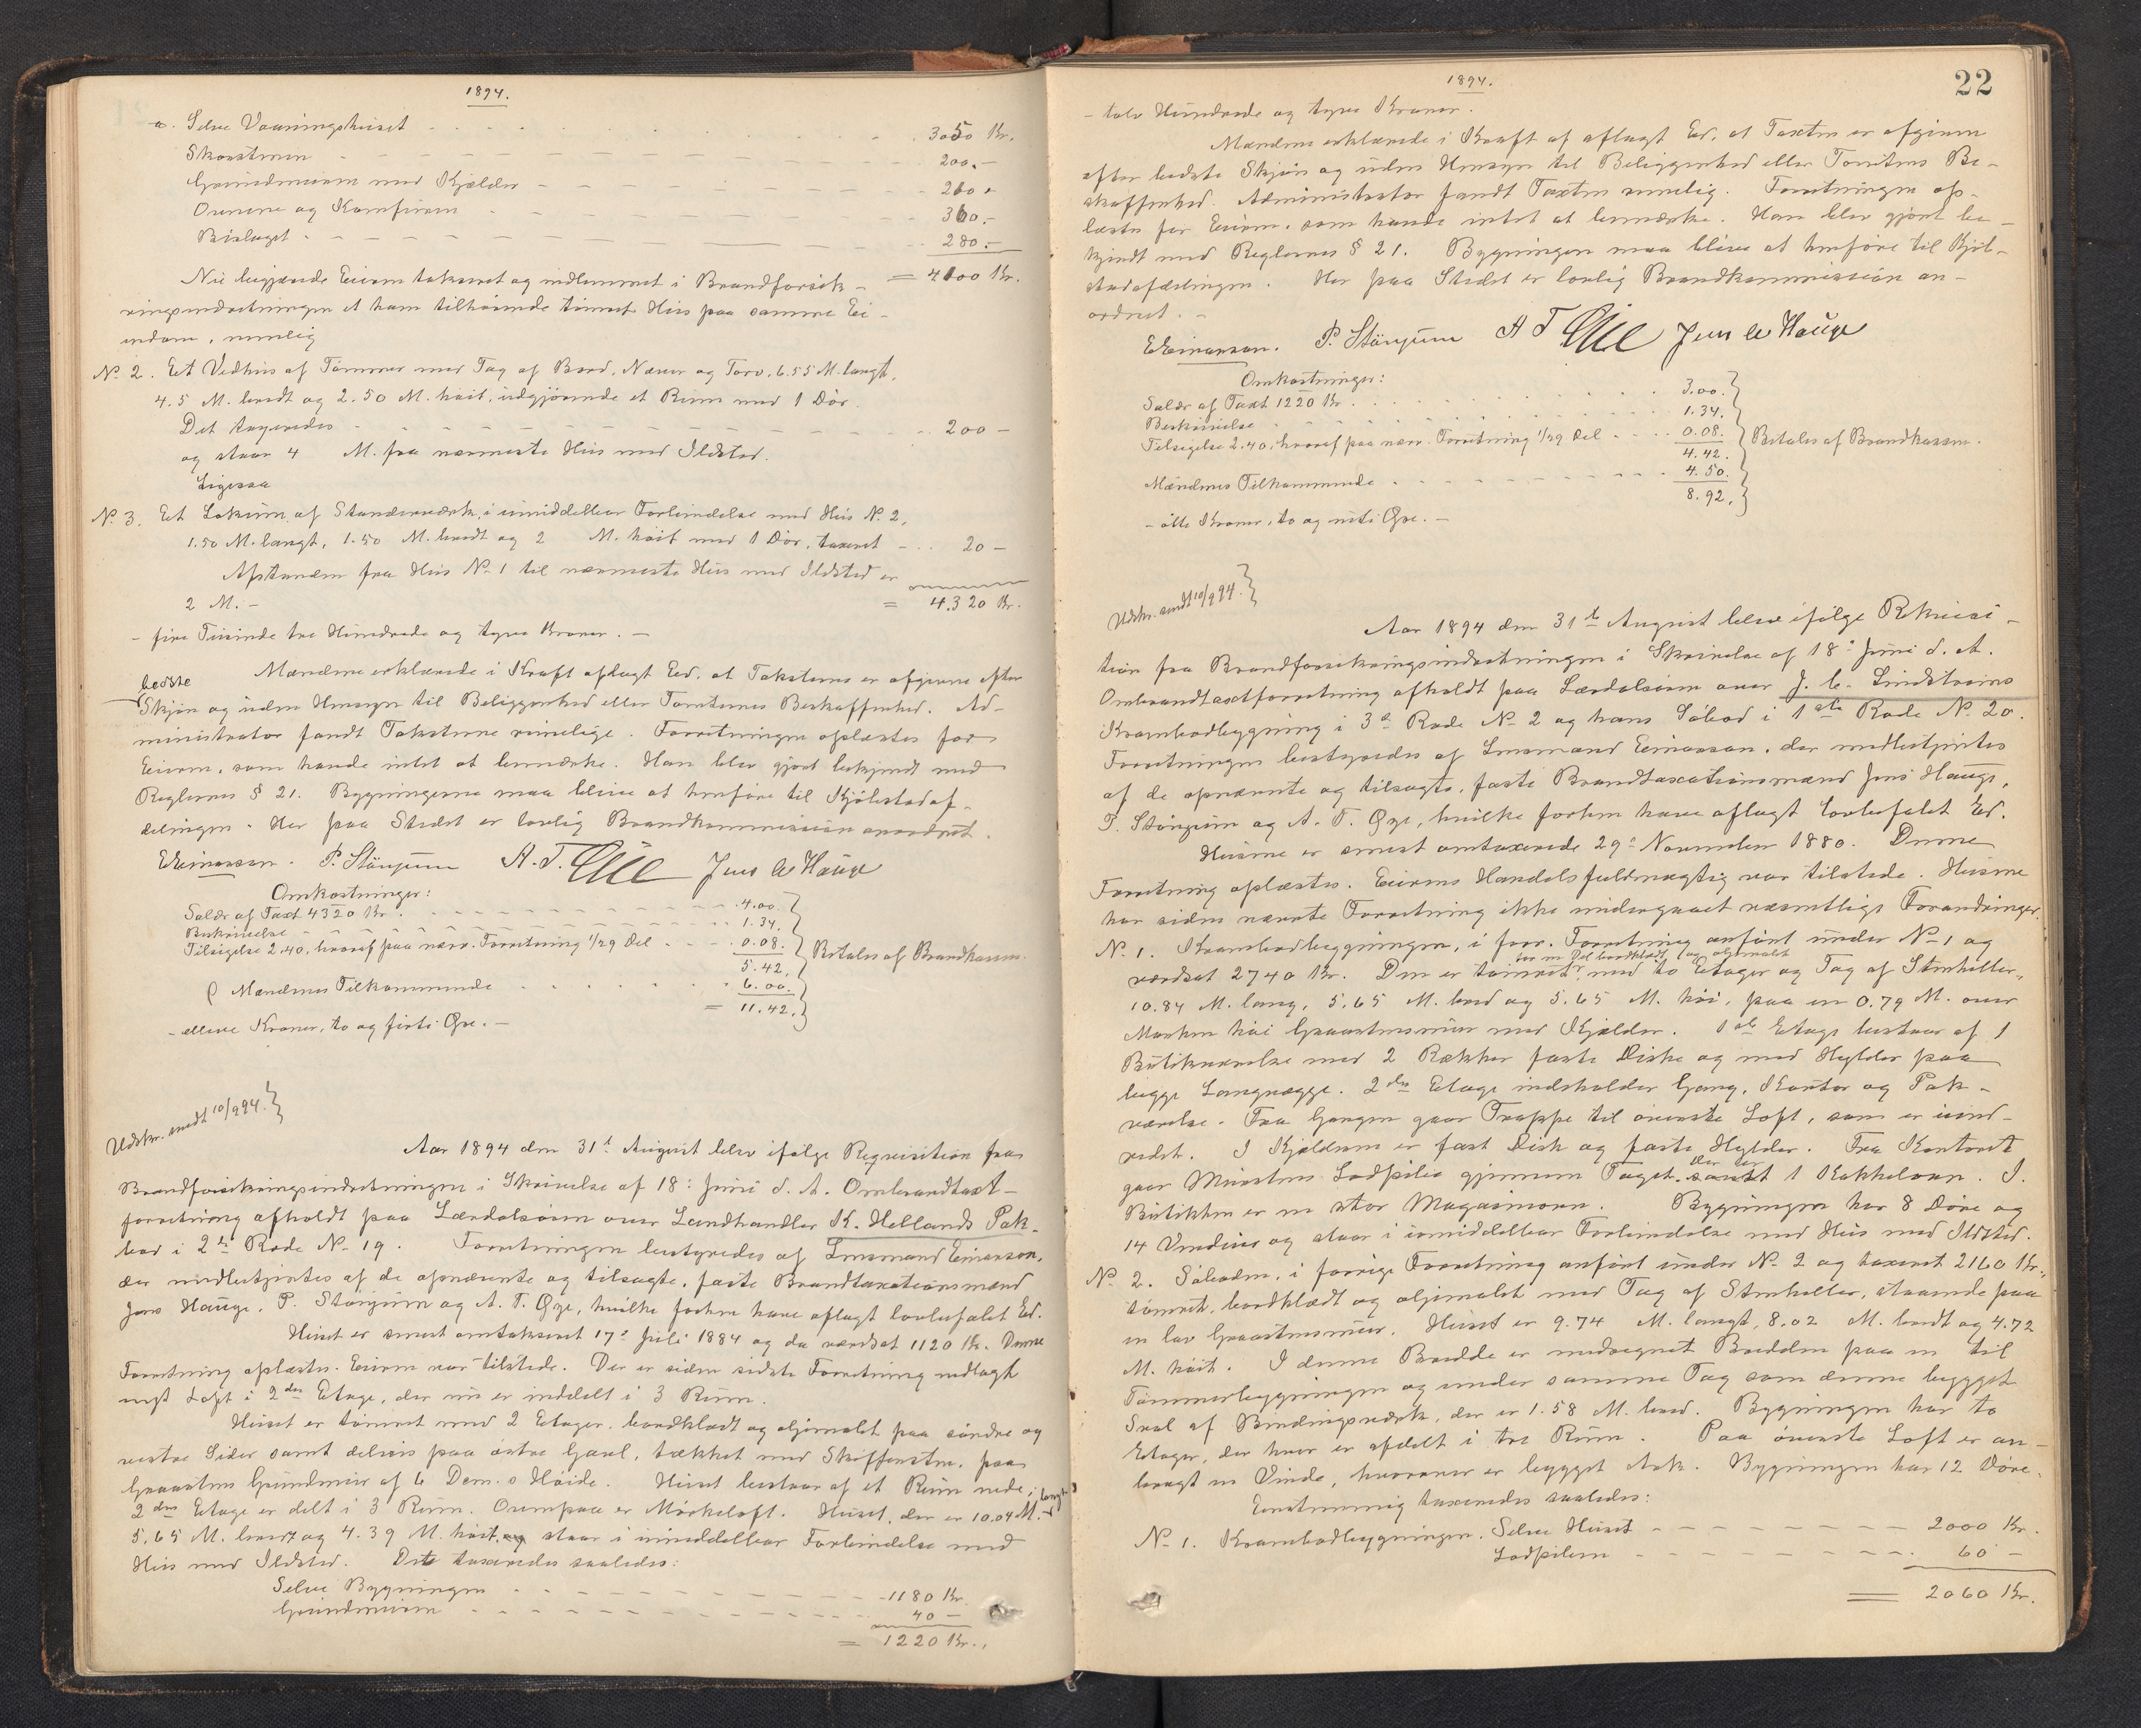 1894.
a. Selve Vaaningshuset 3050 Kr.
Skorstenen 200.-
Grundmuren med Kjelder 260 "
Ovnene og Komfuren 360.-
Bislaget 280.-
= 4100 Kr.
Nu begjærede Eieren takseret og indlemmet i Brandforsik-
ringsindretningen et ham tilhørende tømret Hus paa samme Ei-
endom, nemlig
No 2. Et Vedhus af Tømmer med Tag af Bord, Næver og Torv, 6.55 M. langt,
4.5 M. bredt og 2.50 M. høit, udgjørende et Rum med 1 Dör.
Det taxeredes 200 -
og staar 4 M. fra nærmeste Hus med Ildsted.
Ligesaa
No 3. Et Lokum af Stænderværk, i umiddelbar Forbindelse med Hus No 2,
1.50 M. langt, 1.50 M. bredt og 2 M. höit med 1 Dör, taxeret 20 -
Afstanden fra Hus No 1 til nærmeste Hus med Ildsted er
2 M. -
= 4320 Kr.
- fire Tusinde tre Hundrede og tyve Kroner. -
Mændene erklærede i Kraft aflagt Ed, at Taksterne er afgivne efter
bedste
Skjön og uden Hensyn til Beliggenhed eller Tomternes Beskaffenhed. Ad-
ministrator fandt Taksterne rimelige. Forretningen oplæstes for
Eieren, som havde intet at bemærke. Han blev gjort bekjendt med
Reglernes § 21. Bygningerne maa blive at henføre til Kjöbstadaf-
delingen. Her paa Stedet er lovlig Brandkommission anordnet.
E Einarsen. P. Stönjum A. T. Øie Jens A Hauge
Omkostninger:
Salær af Taxt 4320 Kr. 4.00.
Beskrivelse 1.34.
Tilsigelse 2.40, hvoraf paa nærv. Forretning 1/29 Del 0.08. Betales af Brandkassen.
5.42.
Mændenes Tilkommende 6.00.
= 11.42.
- elleve Kroner, to og firti Øre. -
Udskr. sendt 10/9 94.
Aar 1894 den 31te August blev ifølge Requisition fra
Brandforsikringsindretningen i Skrivelse af 18de Juni d. A. Ombrandtaxt-
forretning afholdt paa Lærdalsören over Landhandler K. Hellands Pak-
bod i 2den Rode No 19. Forretningen bestyredes af Lensmand Einarsen,
der medbetjentes af de opnævnte og tilsagte, faste Brandtaxationsmænd
Jens Hauge, P. Stönjum og A. T. Øye, hvilke forhen have aflagt lovbefalet Ed.
Huset er senest omtakseret 17de Juli 1884 og da værdsat 1120 Kr. Denne
Forretning oplæstes. Eieren var tilstede. Der er siden sidste Forretning nedlagt
nyt Loft i 2den Etage, der nu er inddelt i 3 Rum.
Huset er tömret med 2 Etager, bordklædt og oljemalet paa söndre og
vestre Sider samt delvis paa östre Gavl, tækket med Skifferstene, paa
Graastens Grundmur af 6 Dcm.s Höide. Huset bestaar af et Rum nede;
2den Etage er delt i 3 Rum. Ovenpaa er Mörkeloft. Huset, der er 10.04 M. langt
5,65 M. bredt og 4.39 M. höit, staar i umiddelbar Forbindelse med
Hus med Ildsted. Det taxeredes saaledes:
Selve Bygningen 1180 Kr.
Grundmuren 40 -
= 1220 Kr.
1894.
22
- tolv Hundrede og tyve Kroner.
Mændene erklærede i Kraft af aflagt Ed, at Taxten er afgiven
efter bedste Skjön og uden Hensyn til Beliggenhed eller Tomtens Be-
skaffenhed. Administrator fandt Taxten rimelig. Forretningen op-
læstes for Eieren, som havde intet at bemærke. Han blev gjort be-
kjendt med Reglernes § 21. Bygningen maa blive at henføre til Kjöb-
stadafdelingen. Her paa Stedet er lovlig Brandkommission an-
ordnet. -
E Einarsen. P. Stönjum A T Øie Jens A Hauge
Omkostninger:
Salær af Taxt 1220 Kr. 3.00.
Beskrivelse 1.34.
Tilsigelse 2.40, hvoraf paa nærv. Forretning 1/29 Del 0.08. Betales af Brandkassen.
4.42.
Mændenes Tilkommende 4.50.
8.92.
- otte Kroner, to og niti Øre. -
Udskr. sendt 10/9 94.
Aar 1894 den 31te August blev ifølge Rekvisi-
tion fra Brandforsikringsindretningen i Skrivelse af 18de Juni d. A.
Ombrandtaxtforretning afholdt paa Lærdalsören over J. C. Lindströms
Krambodbygning i 3die Rode No 2 og hans Söbod i 1ste Rode No 20.
Forretningen bestyredes af Lensmand Einarsen, der medbetjentes
af de opnævnte og tilsagte, faste Brandtaxationsmænd Jens Hauge,
P. Stönjum og A. T. Øye, hvilke forhen have aflagt lovbefalet Ed.
Husene er senest omtaxerede 29de November 1880. Denne
Forretning oplæstes. Eierens Handelsfuldmægtig var tilstede. Husene
har siden nævnte Forretning ikke undergaaet væsentlige Forandringer.
No 1. Krambodbygningen, i forr. Forretning anført under No 1 og
værdsat 2740 Kr. Den er tömret, for en Del bordklædt og oljemalet med to Etager og Tag af Stenheller,
10.84 M. lang, 5.65 M. bred og 5.65 M. höi, paa en 0.79 M. over
Marken höi Graastensmur med Kjelder. 1ste Etage bestaar af 1
Butikværelse med 2 Rækker faste Diske og med Hylder paa
begge Langvægge. 2den Etage indeholder Gang, Kontor og Pak-
værelse. Fra Gangen gaar Trappe til överste Loft, som er uind-
redet. I Kjelderen er fast Disk og faste Hylder. Fra Kontoret
gaar Murstens Lodpibe gjennem Taget. Der er 1 Kakkelovn. I
Butikken er en stor Magasinovn. Bygningen har 8 Döre og
14 Vinduer og staar i umiddelbar Forbindelse med Hus med Ildsted.
No 2. Söboden, i forrige Forretning anført under No 2 og taxeret 2160 Kr.,
tömret, bordklædt og oljemalet med Tag af Stenheller, staaende paa
en lav Graastensmur. Huset er 9.74 M. langt, 8.02 M. bredt og 4.72
M. höit. I denne Bredde er medregnet Bredden paa en til
Tømmerbygningen og under samme Tag som denne bygget
Sval af Bindingsværk, der er 1.58 M. bred. Bygningen har to
Etager, der hver er afdelt i tre Rum. Paa överste Loft er an-
bragt en Vinde, hvorover er bygget Ark. Bygningen har 12 Döre.
Eenstemmig taxeredes saaledes:
No 1. Krambodbygningen. Selve Huset 2000 Kr.
Lodpiben 60 -
= 2060 Kr.